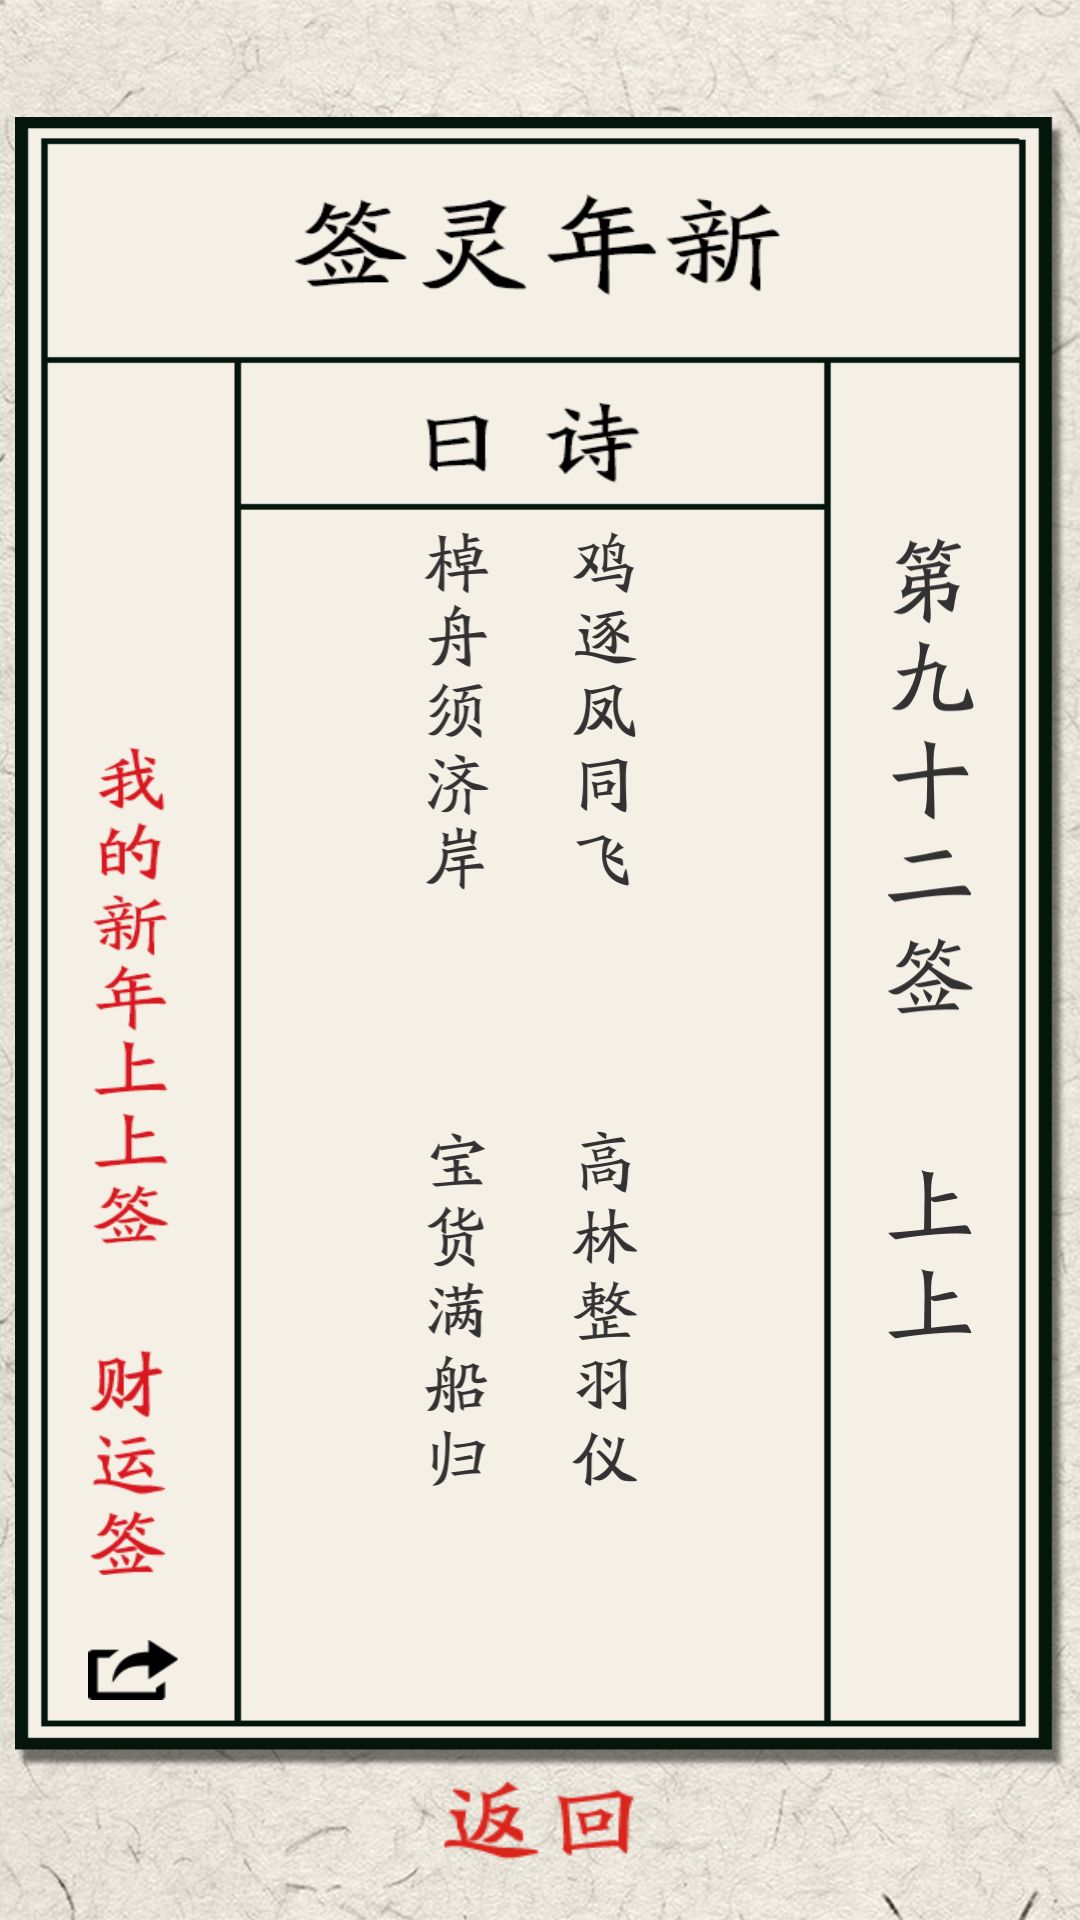 新年灵签
第九十二签 上上
诗曰
鸡逐凤同飞 高林整羽仪
棹舟须济岸 宝货满船归
我的新年上上签 财运签
返回